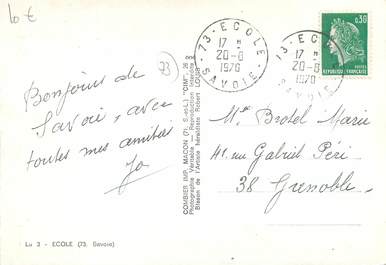 10 €
73
73 - ECOLE
17 H
20-6
1970
SAVOIE
73 - ECOLE
17 H
20-6
1970
SAVOIE
0,30
POSTES
REPUBLIQUE FRANÇAISE
Bonjour de
Savoie, avec
toutes mes amitiés
Jo
COMBIER IMP. MACON (71 S.-et-L.) "CIM"
Photographie Véritable - Reproduction Interdite
Blason de l'Artiste héraldiste Robert LOUIS
Mlle Brotel Marie
41, rue Gabriel Péri
38 Grenoble
Lu 3 - ECOLE (73. Savoie)